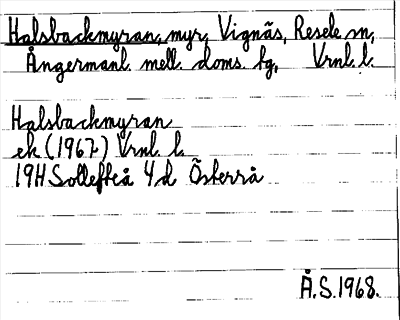 Halsbackmyran, myr, Vignäs, Resele sn,
Ångermanl. mell. doms. fg, Vrnl. l.
Halsbackmyran
ek (1967) Vrnl. l.
19H Sollefteå 4d Österrå
Å.S. 1968.